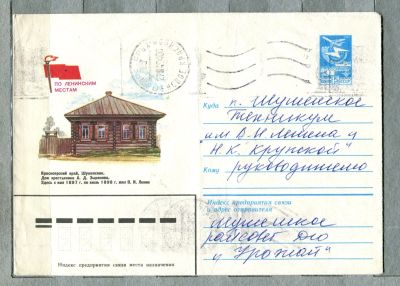 ПО ЛЕНИНСКИМ
МЕСТАМ
Красноярский край, Шушенское.
Дом крестьянина А. Д. Зырянова.
Здесь с мая 1897 г. по июль 1898 г. жил В. И. Ленин
Куда п. Шушенское
Техникум
им В. И Ленина и
Н. К. Крупской"
Кому руководителю
Индекс предприятия связи
и адрес отправителя
Шушенское
райсовет Дсо
"Урожай"
Индекс предприятия связи места назначения